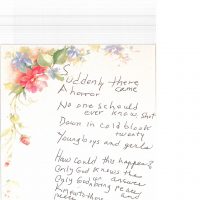 Suddenly there
A horror came
No one should
ever know shot
Down in cold blook
twenty
Young boys and girls
How could this happen?
Only God knows the
answer
Only God bring relief
and